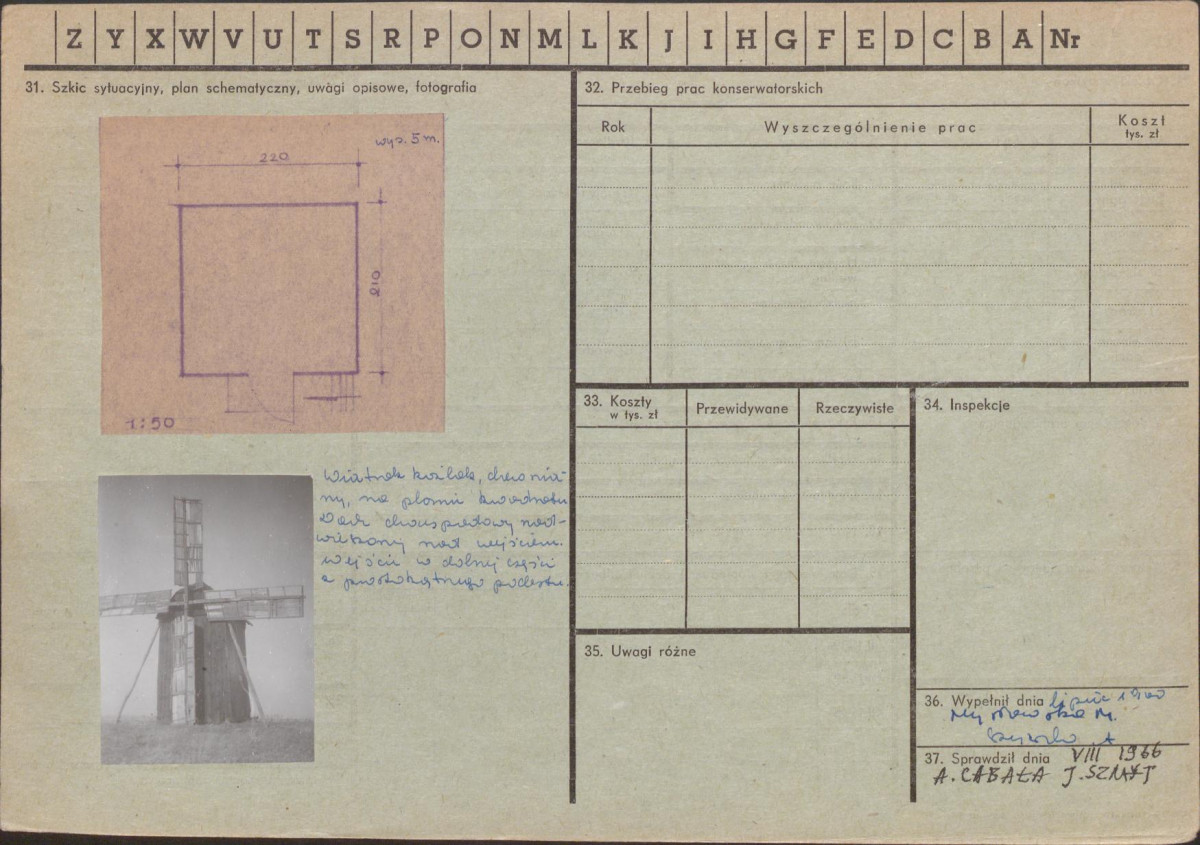 Z Y X W V U T S R P O N M L K J I H G F E D C B A Nr
31. Szkic sytuacyjny, plan schematyczny, uwagi opisowe, fotografia
wys. 5 m.
220
210
1:50
Wiatrak koźlak, drewnia-
ny, na planie kwadratu
Dach dwuspadowy nad-
wieszony nad wejściem.
Wejście w dolnej części
z prostokątnego podestu.
32. Przebieg prac konserwatorskich
Rok
Wyszczególnienie prac
Koszt
tys. zł
33. Koszty
w tys. zł
Przewidywane
Rzeczywiste
34. Inspekcje
35. Uwagi różne
36. Wypełnił dnia lipiec
M.
A
37. Sprawdził dnia VIII 1966
A. CABAŁA J. SZMYT